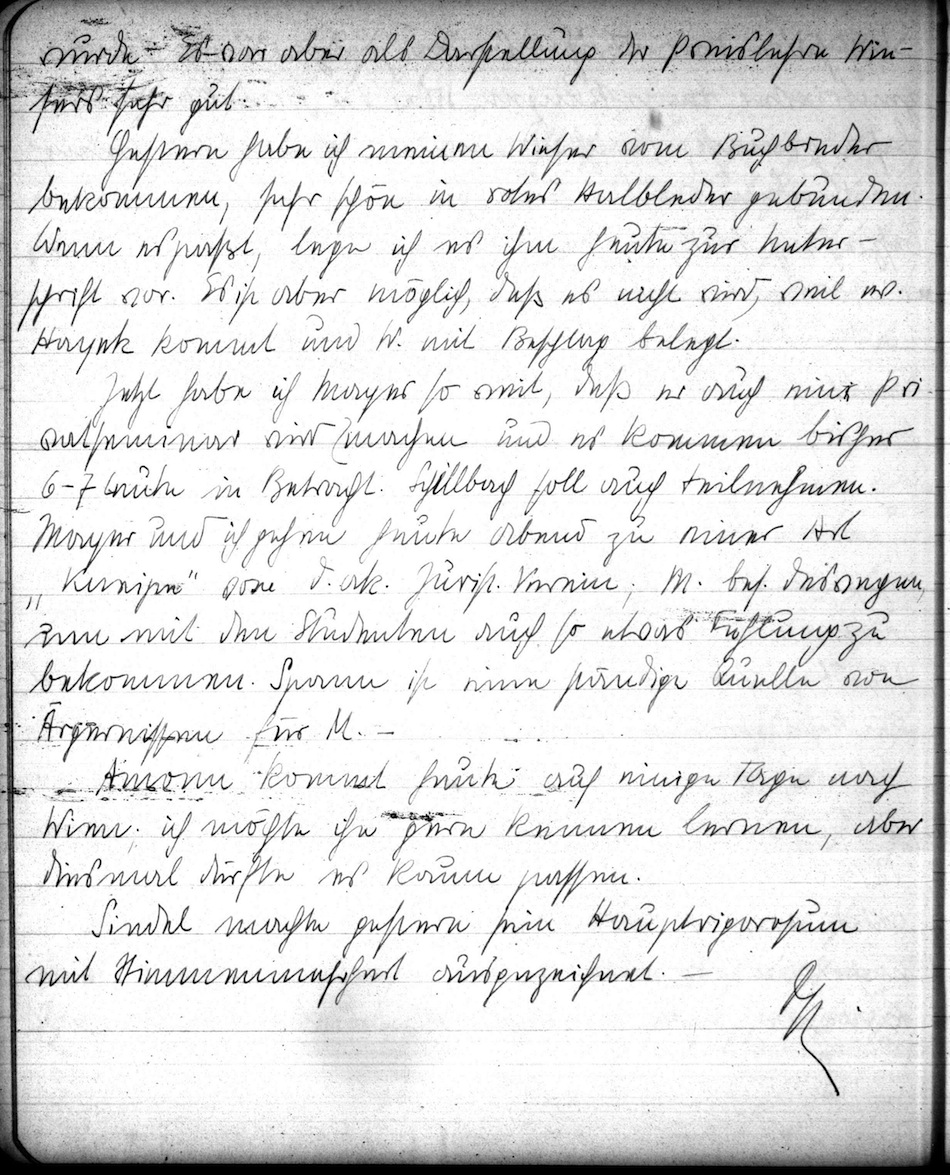 wurde. Es war aber als Darstellung der Preislehre Wie-
sers sehr gut.
Gestern habe ich meinen Wieser vom Buchbinder
bekommen, sehr schön in rotes Halbleder gebunden.
Wenn es paßt, lege ich es ihm heute zur Unter-
schrift vor. Es ist aber möglich, daß es nicht wird, weil
Hayek kommt und W. mit Beschlag belegt.
Jetzt habe ich Mayer so weit, daß er auch ein Pri-
vatseminar wird machen und es kommen bisher
6-7 Leute in Betracht. Schillbach soll auch teilnehmen.
Mayer und ich gehen heute abend zu einer Art
„Kneipe" vom d. ak. Jurist. Verein, M. bes. deswegen,
um mit den Studenten auch so etwas Fühlung zu
bekommen. Spann ist eine ständige Quelle von
Ärgernissen für M. –
Amonn kommt heute auf einige Tage nach
Wien; ich möchte ihn gern kennen lernen, aber
diesmal dürfte es kaum passen.
Sindel machte gestern sein Hauptrigorosum
mit Stimmenmehrheit ausgezeichnet. –